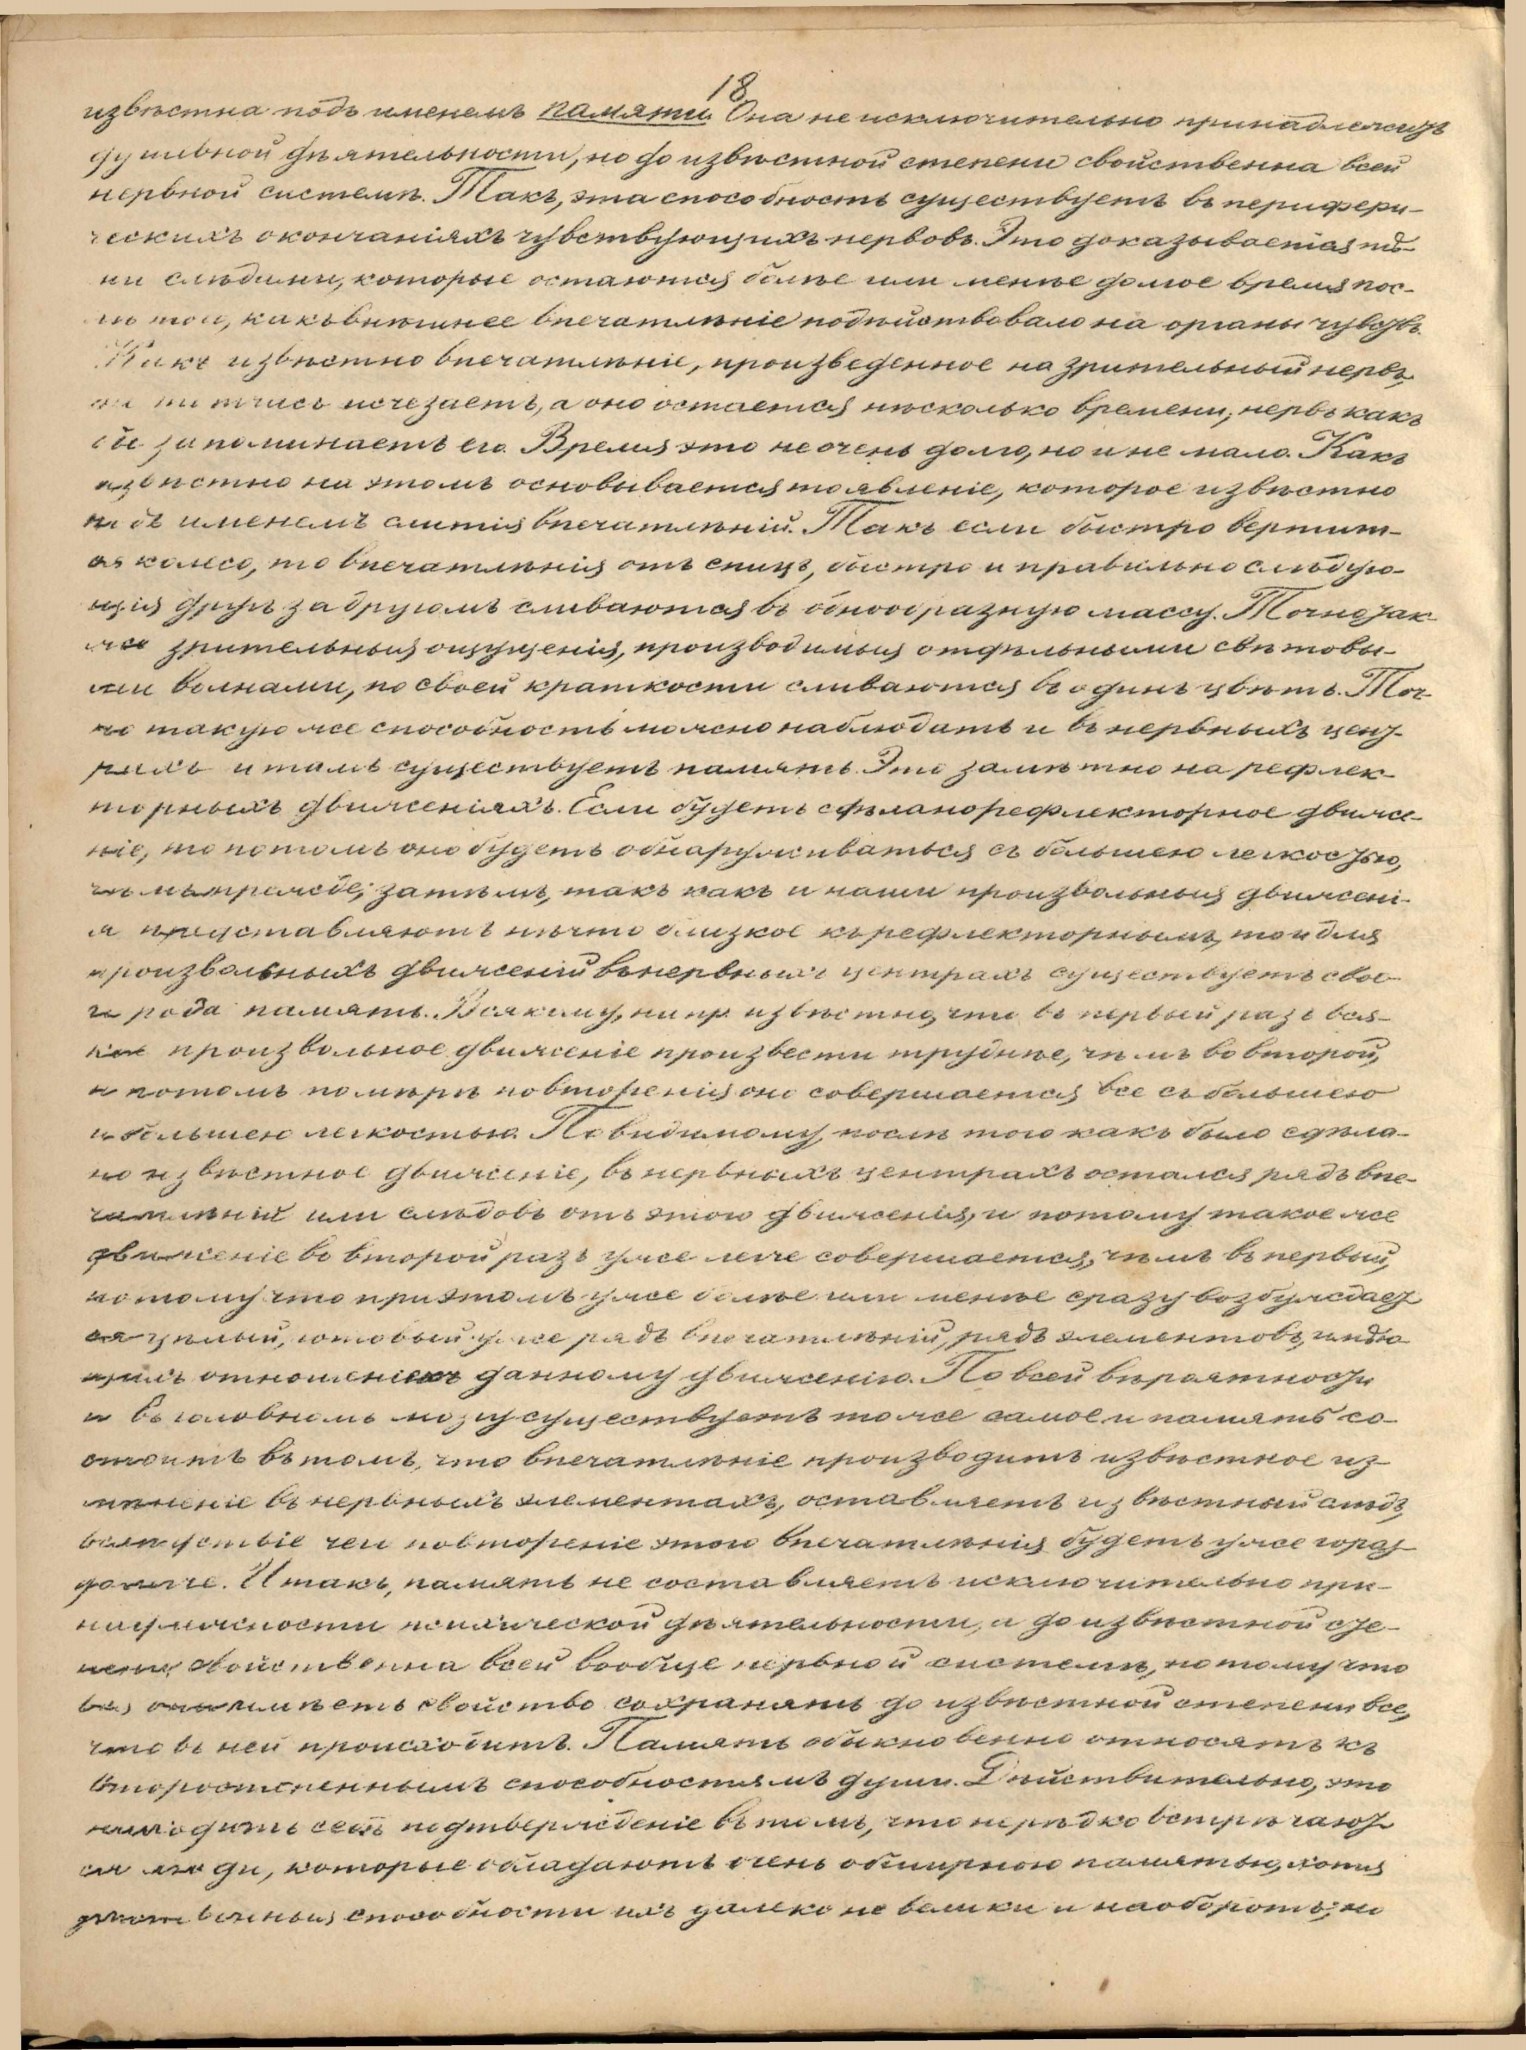 18
извѣстна подъ именемъ памяти. Она не исключительно принадлежитъ
душевной дѣятельности, но до извѣстной степени свойственна всей
нервной системѣ. Такъ, эта способность существуетъ въ перифери-
ческихъ окончаніяхъ чувствующихъ нервовъ. Это доказывается тѣ-
ми слѣдами, которые остаются болѣе или менѣе долгое время пос-
лѣ того, какъ внѣшнее впечатлѣніе подѣйствовало на органы чувствъ.
Какъ извѣстно впечатлѣніе, произведенное на зрительный нервъ,
не тотчасъ исчезаетъ, а оно остается нѣсколько времени; нервъ какъ
бы запоминаетъ его. Время это не очень долго, но и не мало. Какъ
извѣстно на этомъ основывается то явленіе, которое извѣстно
подъ именемъ слитія впечатлѣній. Такъ если быстро вертит-
ся колесо, то впечатлѣнія отъ спицъ, быстро и правильно слѣдую-
щія другъ за другомъ сливаются въ однообразную массу. Точно так
же зрительныя ощущенія, производимыя отдѣльными свѣтовы-
ми волнами, по своей краткости сливаются въ одинъ цвѣтъ. Точ-
но такую же способность можно наблюдать и въ нервныхъ цент-
рахъ и тамъ существуетъ память. Это замѣтно на рефлек-
торныхъ движеніяхъ. Если будетъ сдѣлано рефлекторное движе-
ніе, то потомъ оно будетъ обнаруживаться съ большею легкостью,
чѣмъ прежде; затѣмъ, такъ какъ и наши произвольныя движені-
я представляютъ нѣчто близкое къ рефлекторнымъ, то и для
произвольныхъ движеній въ нервныхъ центрахъ существуетъ свое-
го рода память. Всякому, напр. извѣстно, что въ первый разъ вся-
кое произвольное движеніе произвести труднѣе, чѣмъ во второй,
и потомъ по мѣрѣ повторенія оно совершается все съ большею
и большею легкостью. Повидимому, послѣ того какъ было сдѣла-
но извѣстное движеніе, въ нервныхъ центрахъ остался рядъ впе-
чатлѣній или слѣдовъ отъ этого движенія, и потому такое же
движеніе во второй разъ уже легче совершается, чѣмъ въ первый,
потому что при этомъ уже болѣе или менѣе сразу возбуждает
ся цѣлый, готовый уже рядъ впечатлѣній, рядъ элементовъ, имѣю-
щихъ отношеніе къ данному движенію. По всей вѣроятности
и въ головномъ мозгу существуетъ то же самое и память со-
стоитъ въ томъ, что впечатлѣніе производитъ извѣстное из-
мѣненіе въ нервныхъ элементахъ, оставляетъ извѣстный слѣдъ,
вслѣдствіе чего повтореніе этого впечатлѣнія будетъ уже гораз
до легче. Итакъ, память не составляетъ исключительно при-
надлежности психической дѣятельности, а до извѣстной сте-
пени свойственна всей вообще нервной системѣ, потому что
вся она имѣетъ свойство сохранять до извѣстной степени все,
что въ ней происходитъ. Память обыкновенно относятъ къ
второстепеннымъ способностямъ души. Дѣйствительно, это
находитъ себѣ подтвержденіе въ томъ, что нерѣдко встрѣчают
ся люди, которые обладаютъ очень обширною памятью, хотя
умственныя способности ихъ далеко не велики и наоборотъ; но